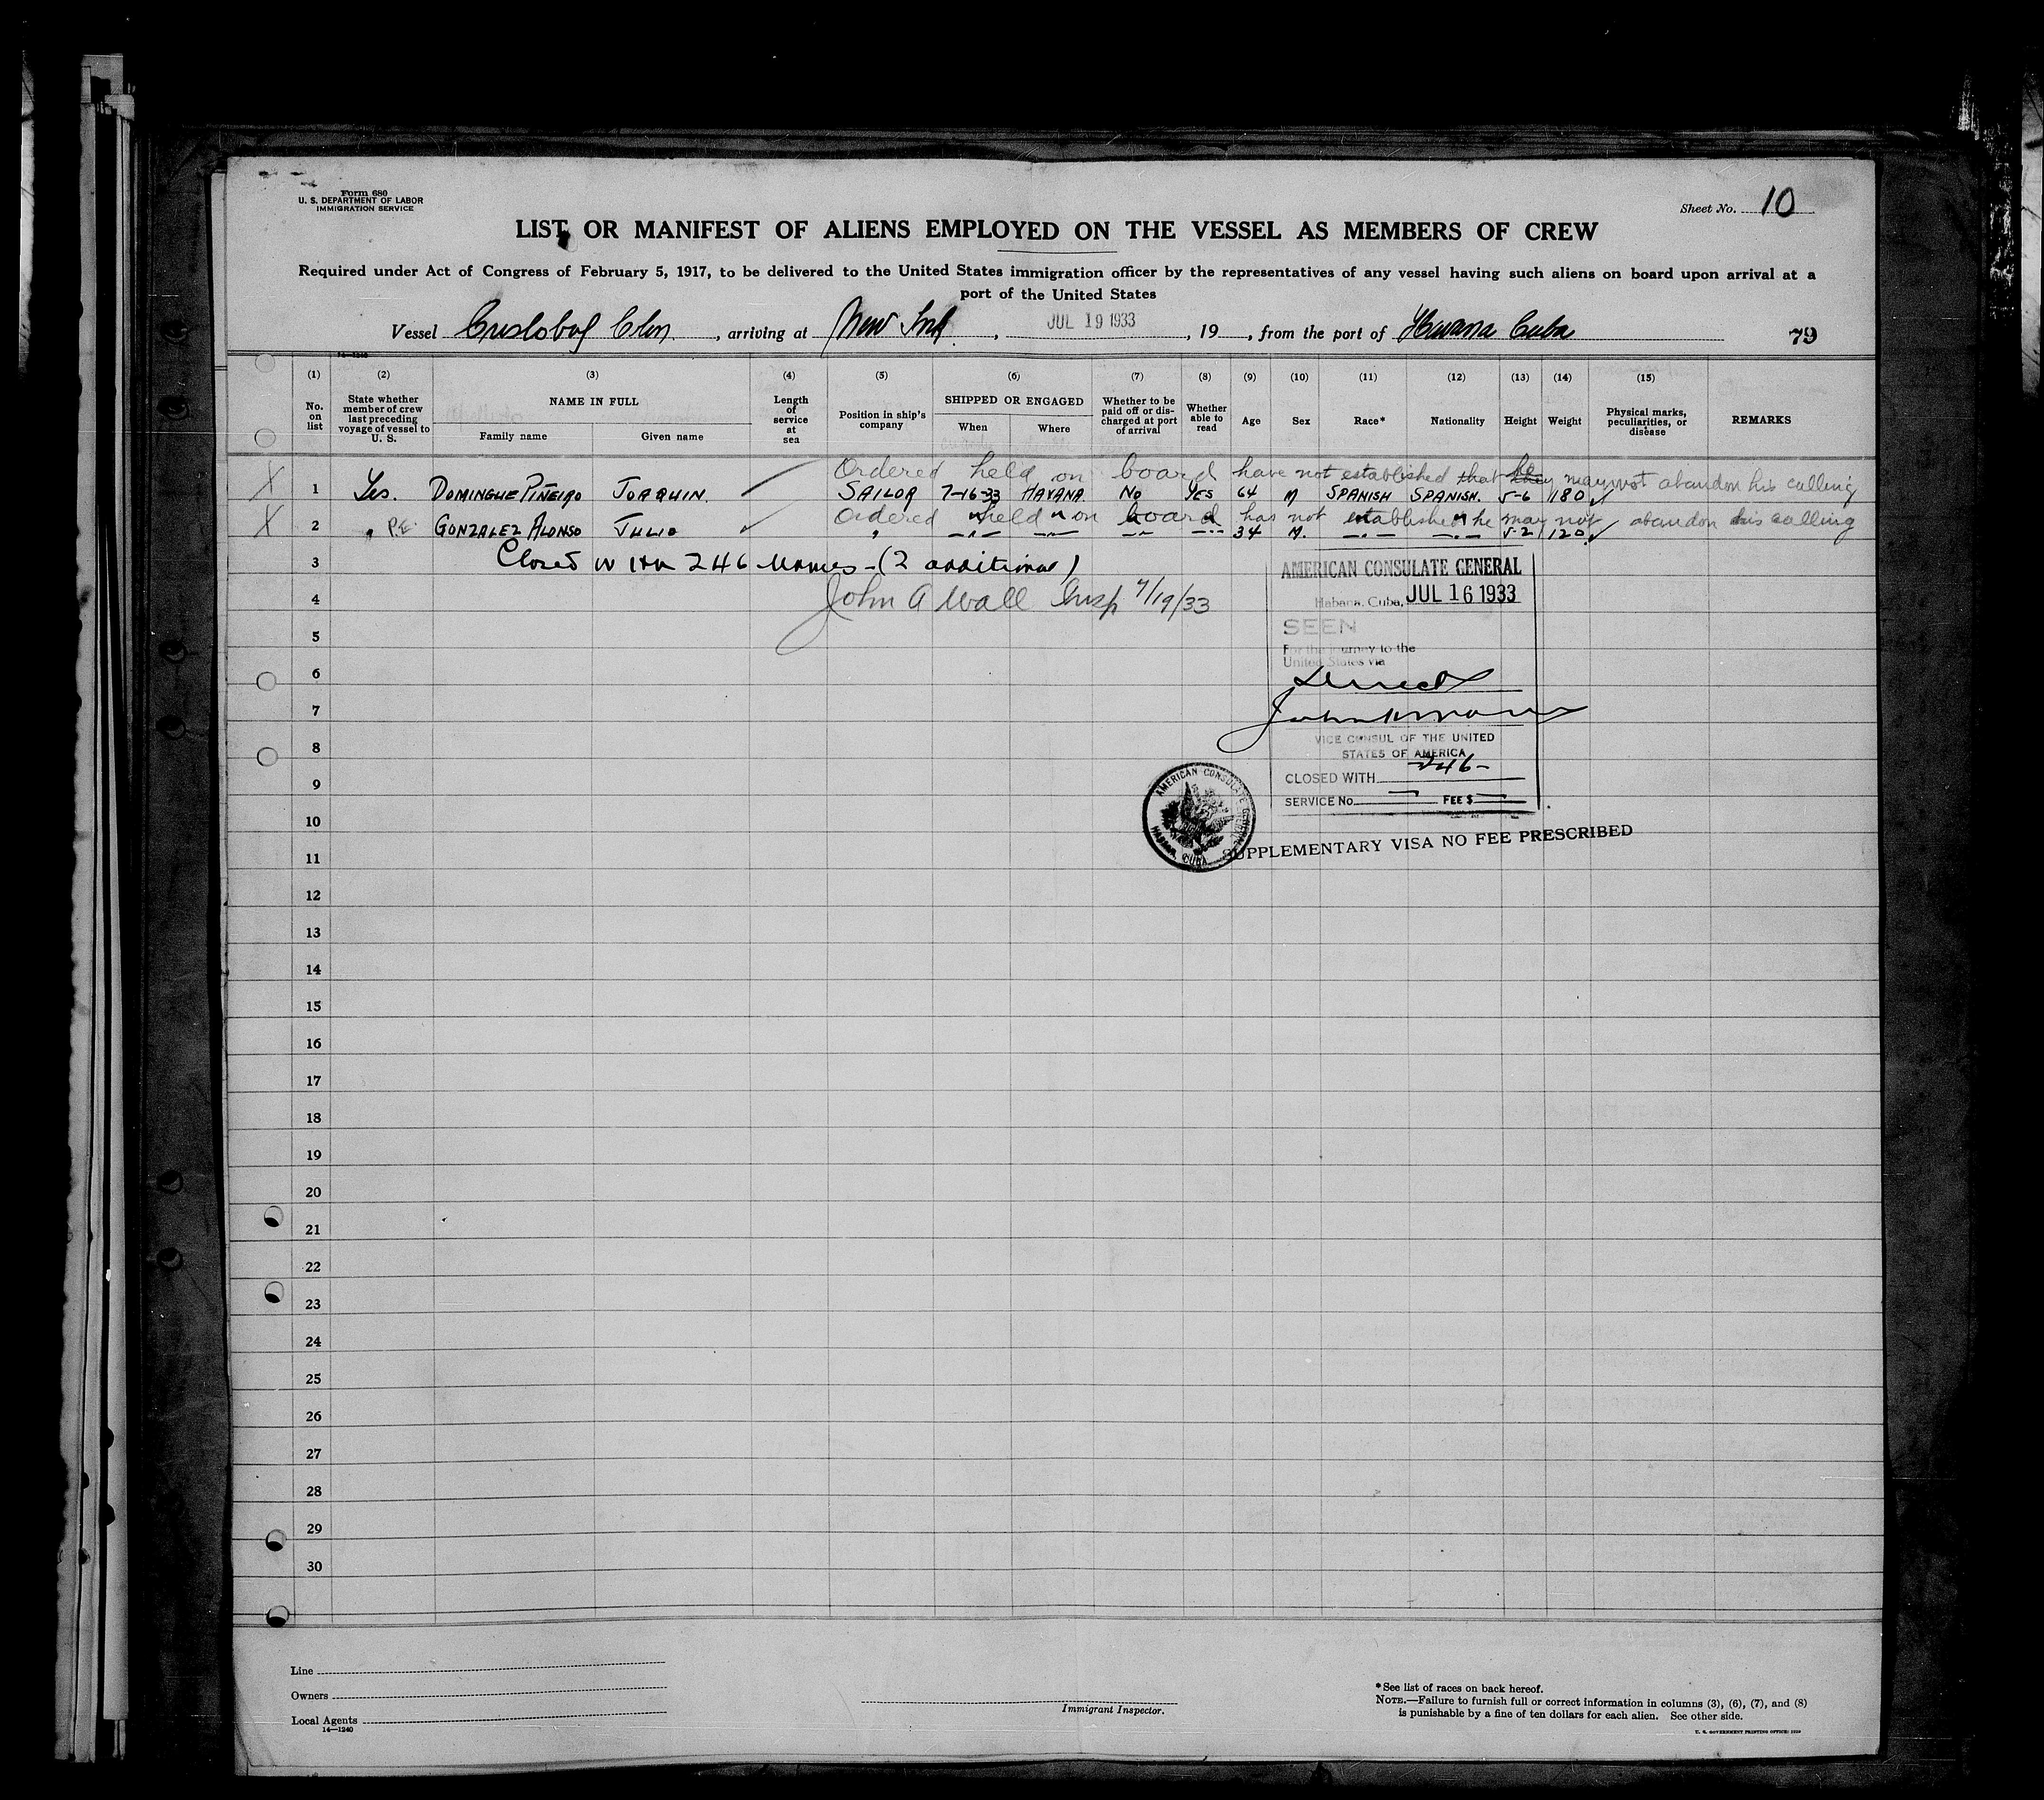 Form 680
U. S. DEPARTMENT OF LABOR
IMMIGRATION SERVICE
Sheet No. 10
LIST OR MANIFEST OF ALIENS EMPLOYED ON THE VESSEL AS MEMBERS OF CREW
Required under Act of Congress of February 5, 1917, to be delivered to the United States immigration officer by the representatives of any vessel having such aliens on board upon arrival at a
port of the United States
Vessel Cristobal Colon, arriving at New York, JUL 19 1933, 19 , from the port of Havana Cuba 79
14—1240
(1) (2) (3) (4) (5) (6) (7) (8) (9) (10) (11) (12) (13) (14) (15)
No. on list
State whether member of crew last preceding voyage of vessel to U. S.
NAME IN FULL
Family name Given name
Length of service at sea
Position in ship's company
SHIPPED OR ENGAGED
When Where
Whether to be paid off or discharged at port of arrival
Whether able to read
Age Sex Race* Nationality Height Weight
Physical marks, peculiarities, or disease
REMARKS
Ordered held on board have not established that he may not abandon his calling
X 1 Yes. DOMINGUE PIÑEIRO JOAQUIN. SAILOR 7-16-33 HAVANA. No YES 64 M SPANISH SPANISH. 5-6 180 ✓
Ordered held on board has not established he may not abandon his calling
X 2 " P.E. GONZALEZ ALONSO JULIO ✓ " —"— —"— —"— —"— 34 M. —"— —"— 5-2 120 ✓
3 Closed with 246 names - (2 additional)
4 John A Wall Insp 7/19/33
AMERICAN CONSULATE GENERAL
Habana, Cuba, JUL 16 1933
SEEN
For the journey to the
United States via
Direct
VICE CONSUL OF THE UNITED
STATES OF AMERICA
CLOSED WITH 246-
SERVICE No. — FEE $ —
AMERICAN CONSULATE GENERAL
HABANA, CUBA
SUPPLEMENTARY VISA NO FEE PRESCRIBED
5
6
7
8
9
10
11
12
13
14
15
16
17
18
19
20
21
22
23
24
25
26
27
28
29
30
Line
Owners
Local Agents
14—1240
Immigrant Inspector.
*See list of races on back hereof.
NOTE.—Failure to furnish full or correct information in columns (3), (6), (7), and (8)
is punishable by a fine of ten dollars for each alien. See other side.
U. S. GOVERNMENT PRINTING OFFICE: 1929